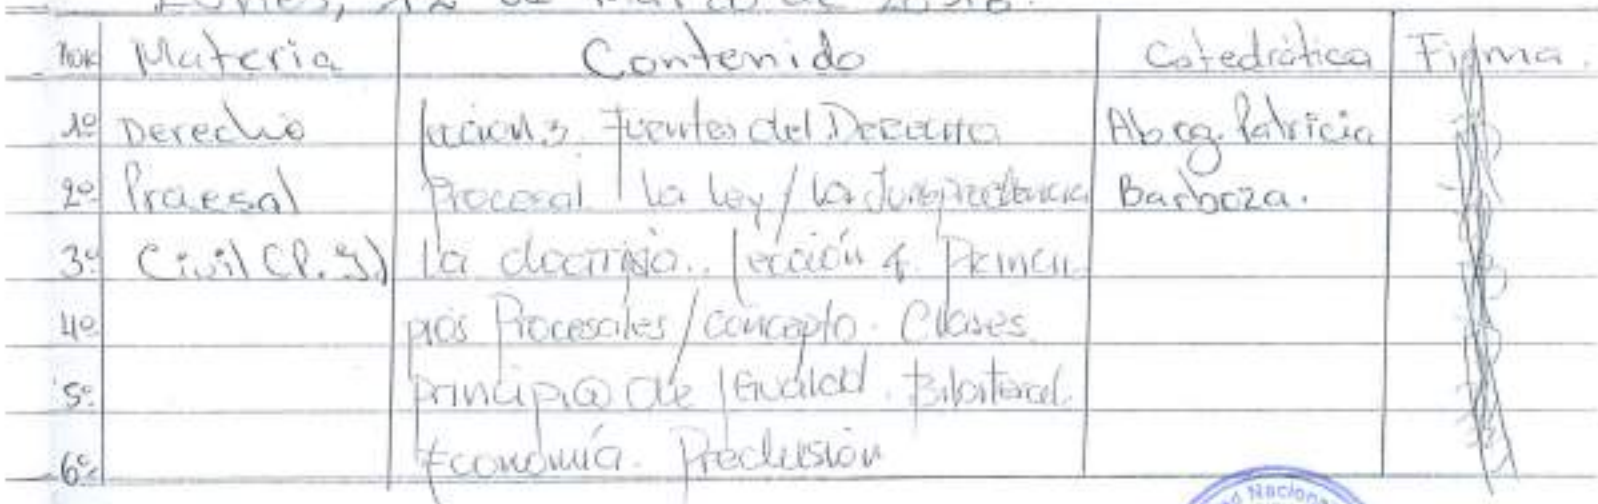 Lunes, 12 de Marzo de 2018.
Hora Materia Contenido Catedrática Firma.
1º Derecho Lección 3. Fuentes del Derecho Abog. Patricia
2º Procesal Procesal la Ley / La Jurisprudencia Barboza.
3º Civil (P. I) La doctrina.. Lección 4. Princi
4º pios Procesales / concepto. Clases
5º principio de Igualdad. Bilateral.
6º Economía. Preclusión
Nacional